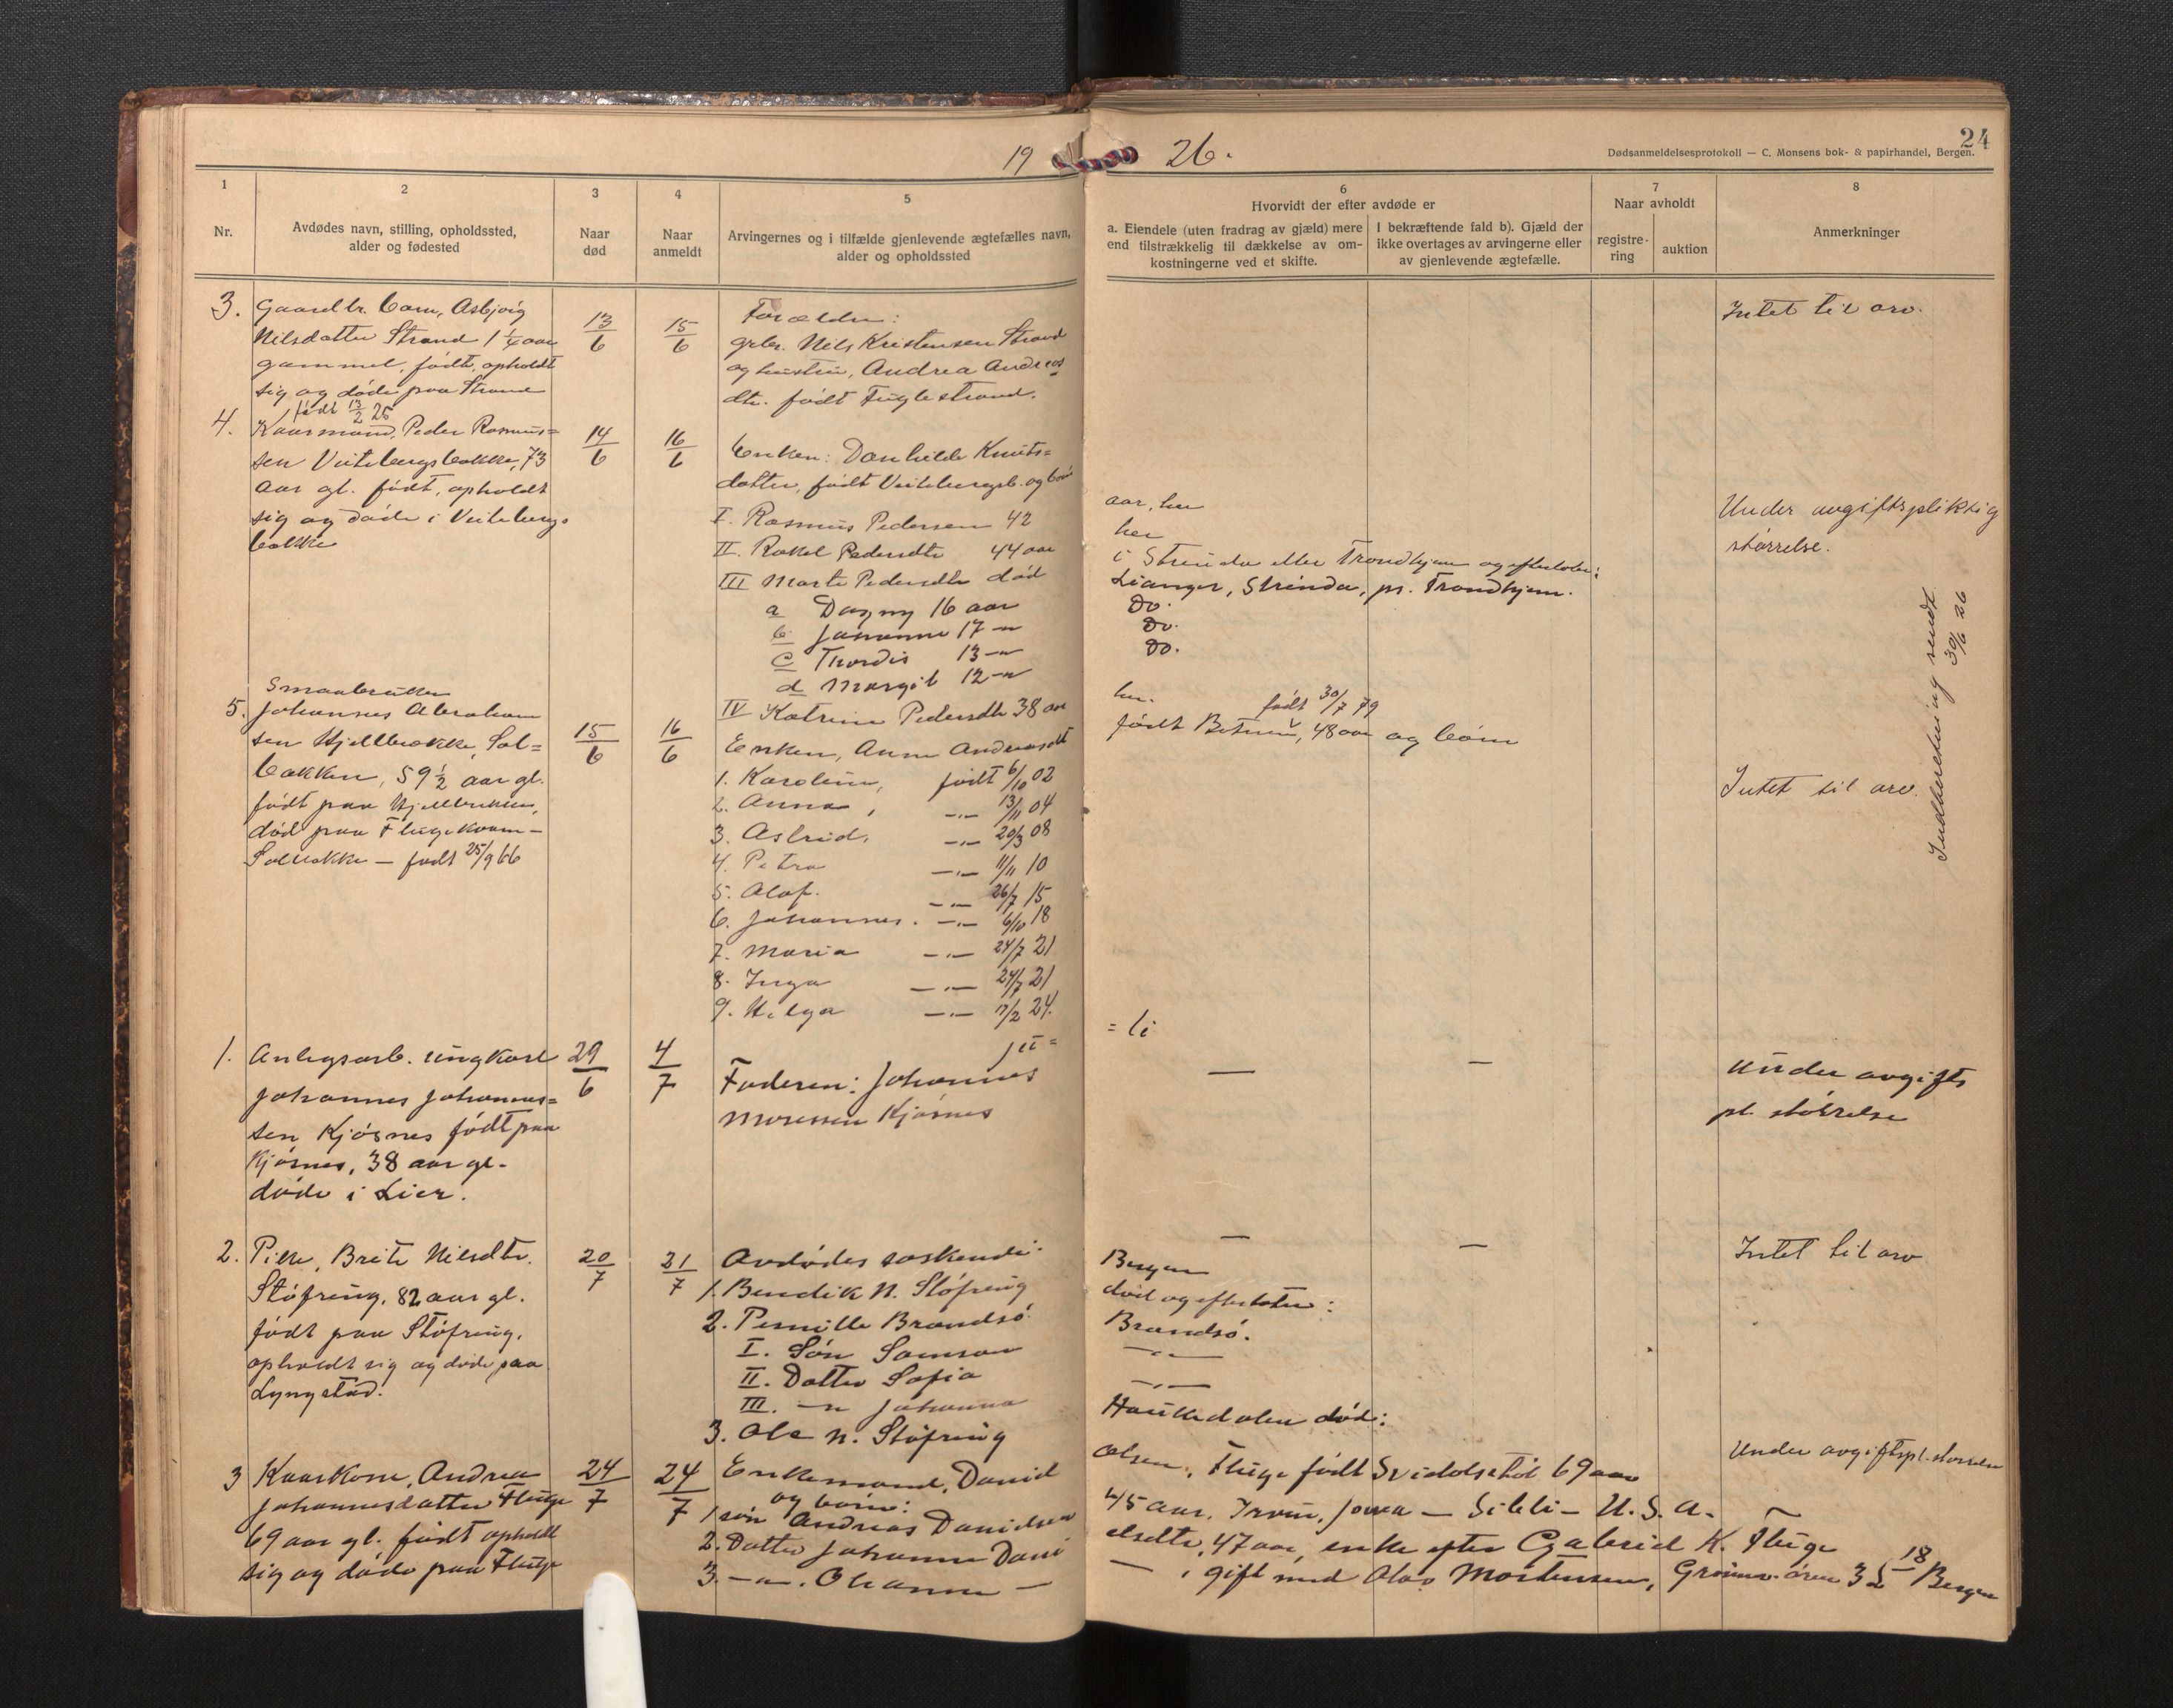 19 26.
24
Dødsanmeldelsesprotokoll — C. Monsens bok- & papirhandel, Bergen.
1
Nr.
2
Avdødes navn, stilling, opholdssted,
alder og fødested
3
Naar
død
4
Naar
anmeldt
5
Arvingernes og i tilfælde gjenlevende ægtefælles navn,
alder og opholdssted
6
Hvorvidt der efter avdøde er
a. Eiendele (uten fradrag av gjæld) mere
end tilstrækkelig til dækkelse av om-
kostningerne ved et skifte.
I bekræftende fald b). Gjæld der
ikke overtages av arvingerne eller
av gjenlevende ægtefælle.
7
Naar avholdt
registre-
ring
auktion
8
Anmerkninger
3. Gaardbr. barn, Asbjørg
Nilsdatter Strand 1 1/4 aar
gammel, født, opholdt
sig og døde paa Strand
født 13/2 25
13/6
15/6
Forældre:
grbr. Nils Kristensen Strand
og hustru, Andrea Andreas
dtr. født Fuglestrand.
Intet til arv.
4. Kaarmand, Peder Rasmus=
sen Veitebergsbakke, 73
aar gl. født, opholdt
sig og døde i Veitebergs
bakke
14/6
16/6
Enken: Danhilde Knuts=
datter, født Veitebergsb. og børn
I. Rasmus Pedersen 42 aar, her
II. Rakel Pedersdtr 44 aar her
III Marte Pedersdtr død i Strinda eller Trondhjem og efterlater:
a Dagny 16 aar Lianger, Strinda, pr. Trondhjem.
b Johanne 17 -"- Do.
c Thordis 13 -"- Do.
d Margit 12 -"- Do.
IV Katrine Pedersdtr 38 aar her.
Under avgiftspliktig
størrelse.
Indberetning sendt
30/6 26
5. Smaabruker
Johannes Abraham
sen Hjellbrekke, Sol=
bakken, 59 1/2 aar gl.
født paa Hjellbrekken,
død paa Flugekvam-
Solbakke — født 25/9 66
15/6
16/6
Enken, Anne Andreasdt født 30/7 79
født Betnen, 48 aar og børn
1. Karoline, født 6/10 02
2. Anna, -"- 13/11 04
3. Astrid, -"- 20/3 08
4. Petra -"- 11/11 10
5. Olaf. -"- 26/7 15
6. Johannes. -"- 6/10 18
7. Maria -"- 24/7 21
8. Inga -"- 24/7 21
9. Helga -"- 17/2 24.
Intet til arv.
1. Anlegsarb. ungkarl
Johannes Johannes=
sen Kjøsnes født paa
Kjøsnes, 38 aar gl.
døde i Lier.
29/6
4/7
Juli
Faderen: Johannes
Moressen Kjøsnes
— —
Under avgifts
pl. størrelse
2. Pike, Brite Nilsdtr.
Støfring, 82 aar gl.
født paa Støfring,
opholdt sig og døde paa
Lyngstad.
20/7
21/7
Avdødes søskende:
— —
1. Bendik N. Støfring Bergen
2. Pernille Brandsø død og efterlater:
I. Søn Samson Brandsø.
II. Datter Sofia -"-
III. -"- Johanna -"-
3. Ole N. Støfring Haukedalen død:
Intet til arv
3 Kaarkone, Andrea
Johannesdatter Fluge
69 aar gl. født opholdt
sig og døde paa Fluge
24/7
24/7
Enkemand, David Olsen, Fluge født Svidalstøl 69 aar
og børn:
1 søn Andreas Davidsen 45 aar, Irwin, Jowa — Sibli — U.S.A.
2. Datter Johanne Davi elsdtr, 47 aar, enke efter Gabriel K. Fluge
3. -"-. Oleanne — —, gift med Olav Mortensen, 35 Bergen
Under avgiftspl. størrelse